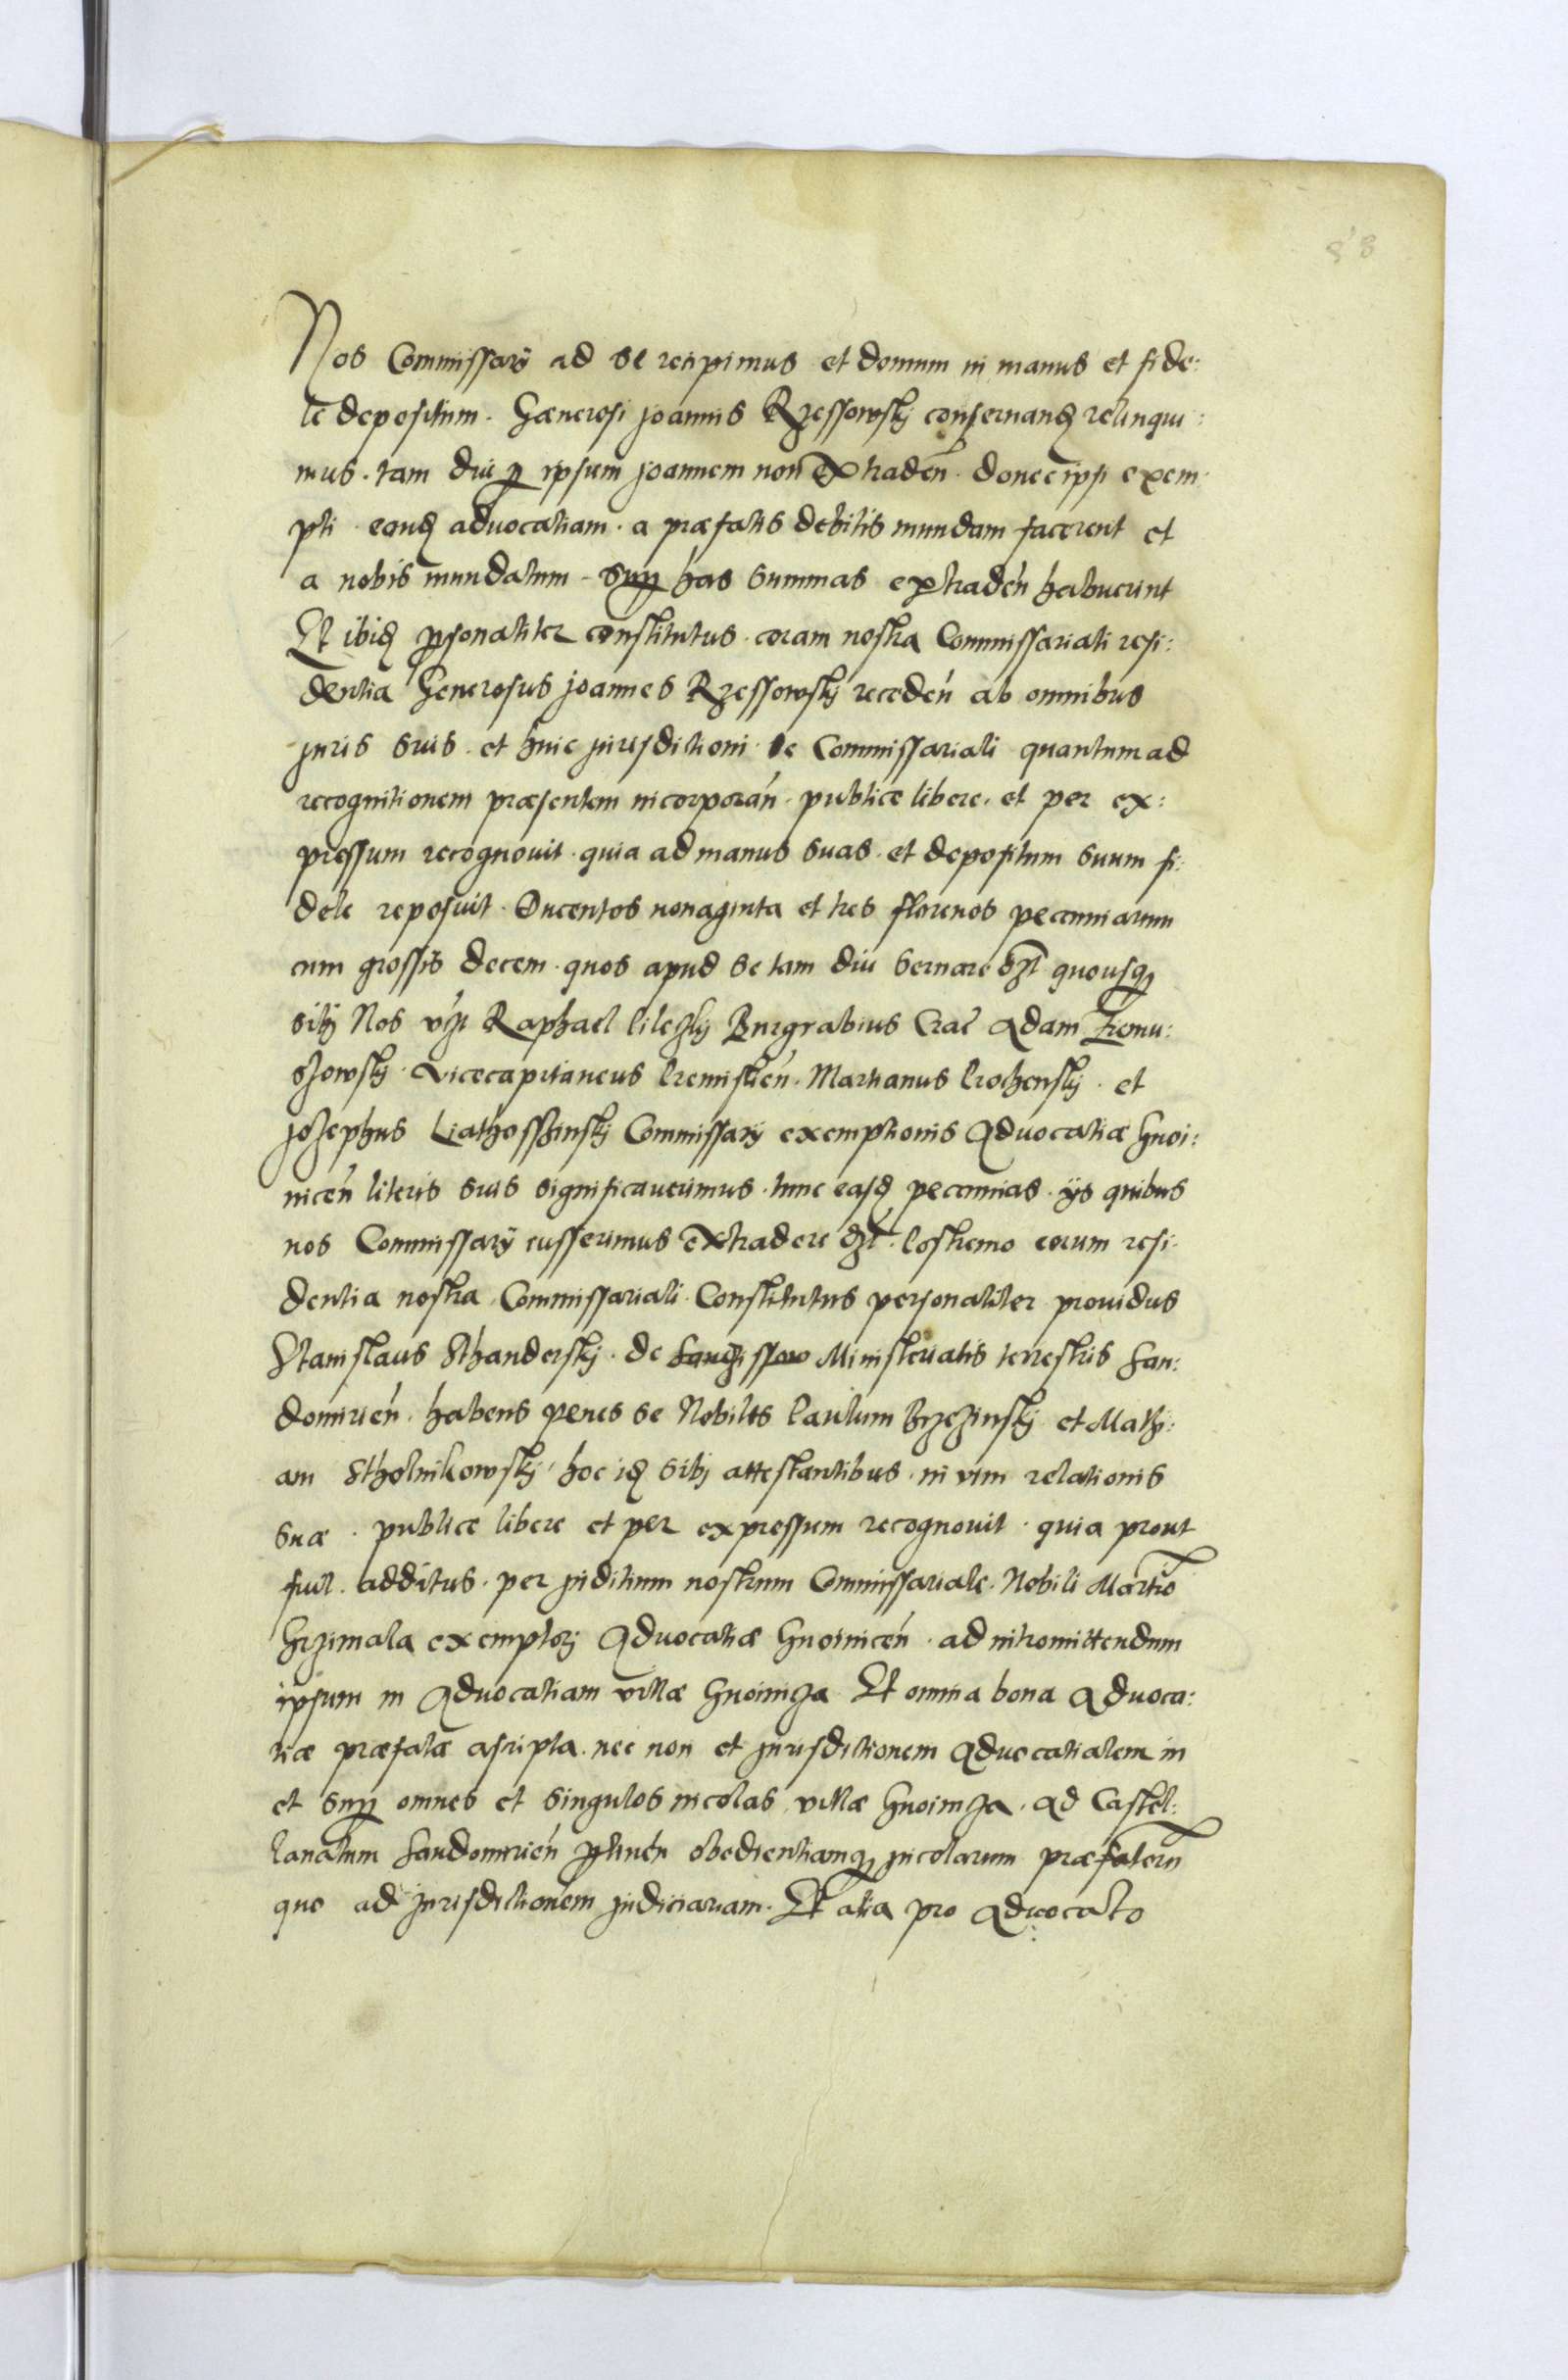 Nos Commissarij ad se recipimus et domum in manus et fide:
le depositum. Gænerosi Joannis Rzessowskj conservand relinqui:
mus. tam diu p ipsum Joannem non Extraden. donec ipsi exem
pti eand advocatiam. a præfatis debitis mundam facerent et
a nobis mundatum sup has summas extraden habuerint
Et ibid psonaliter constitutus. coram nostra Commissariali resi:
dentia Generosus Joannes Rzessowskj receden ab omnibus
juris suis. et huic jurisditioni se Commissariali quantum ad
recognitionem præsentem incorporan. publice libere. et per ex:
pressum recognovit. quia ad manus suas. et depositum suum fi:
dele reposuit. Ducentos nonaginta et tres florenos pecuniarum
cum grossis decem. quos apud se tam diu servare quousq
sibj Nos vzt Raphael Burgrabius Crac Adam
Vicecapitaneus. Martianus et
Josephus Commissarij exemptionis Advocatiæ Gnoi:
nicen literis suis significaverimus. tunc easd pecunias. ijs quibus
nos Commissarij iusserimus Extradere. Postremo corum resi
dentia nostra Commissariali. Constitutus personaliter providus
Stanislaus Sthanderskj. de Ministerialis terrestris San:
domirien. habens penes se Nobiles Paulum Brzezinskj et Mathi:
am Stholnikowskj, hoc id sibj attestantibus. in vim relationis
suæ. publice libere et per expressum recognovit. quia prout
fuit. additus. per juditium nostrum Commissariale. Nobili Martio
Grzimala exemptorj Advocatiæ Gnoinicen. ad intromittendum
ipsum in Advocatiam villæ Gnoinicza Et omnia bona Advoca:
tiæ præfatæ ascripta. nec non et jurisditionem Advocatialem in
et sup omnes et singulos incolas villæ Gnoinicza. ad Castel:
lanatum Sandomirien ptinen obedientiamq incolarum præfatoru
quo ad jurisdictionem judiciariam. Et alia pro Advocato